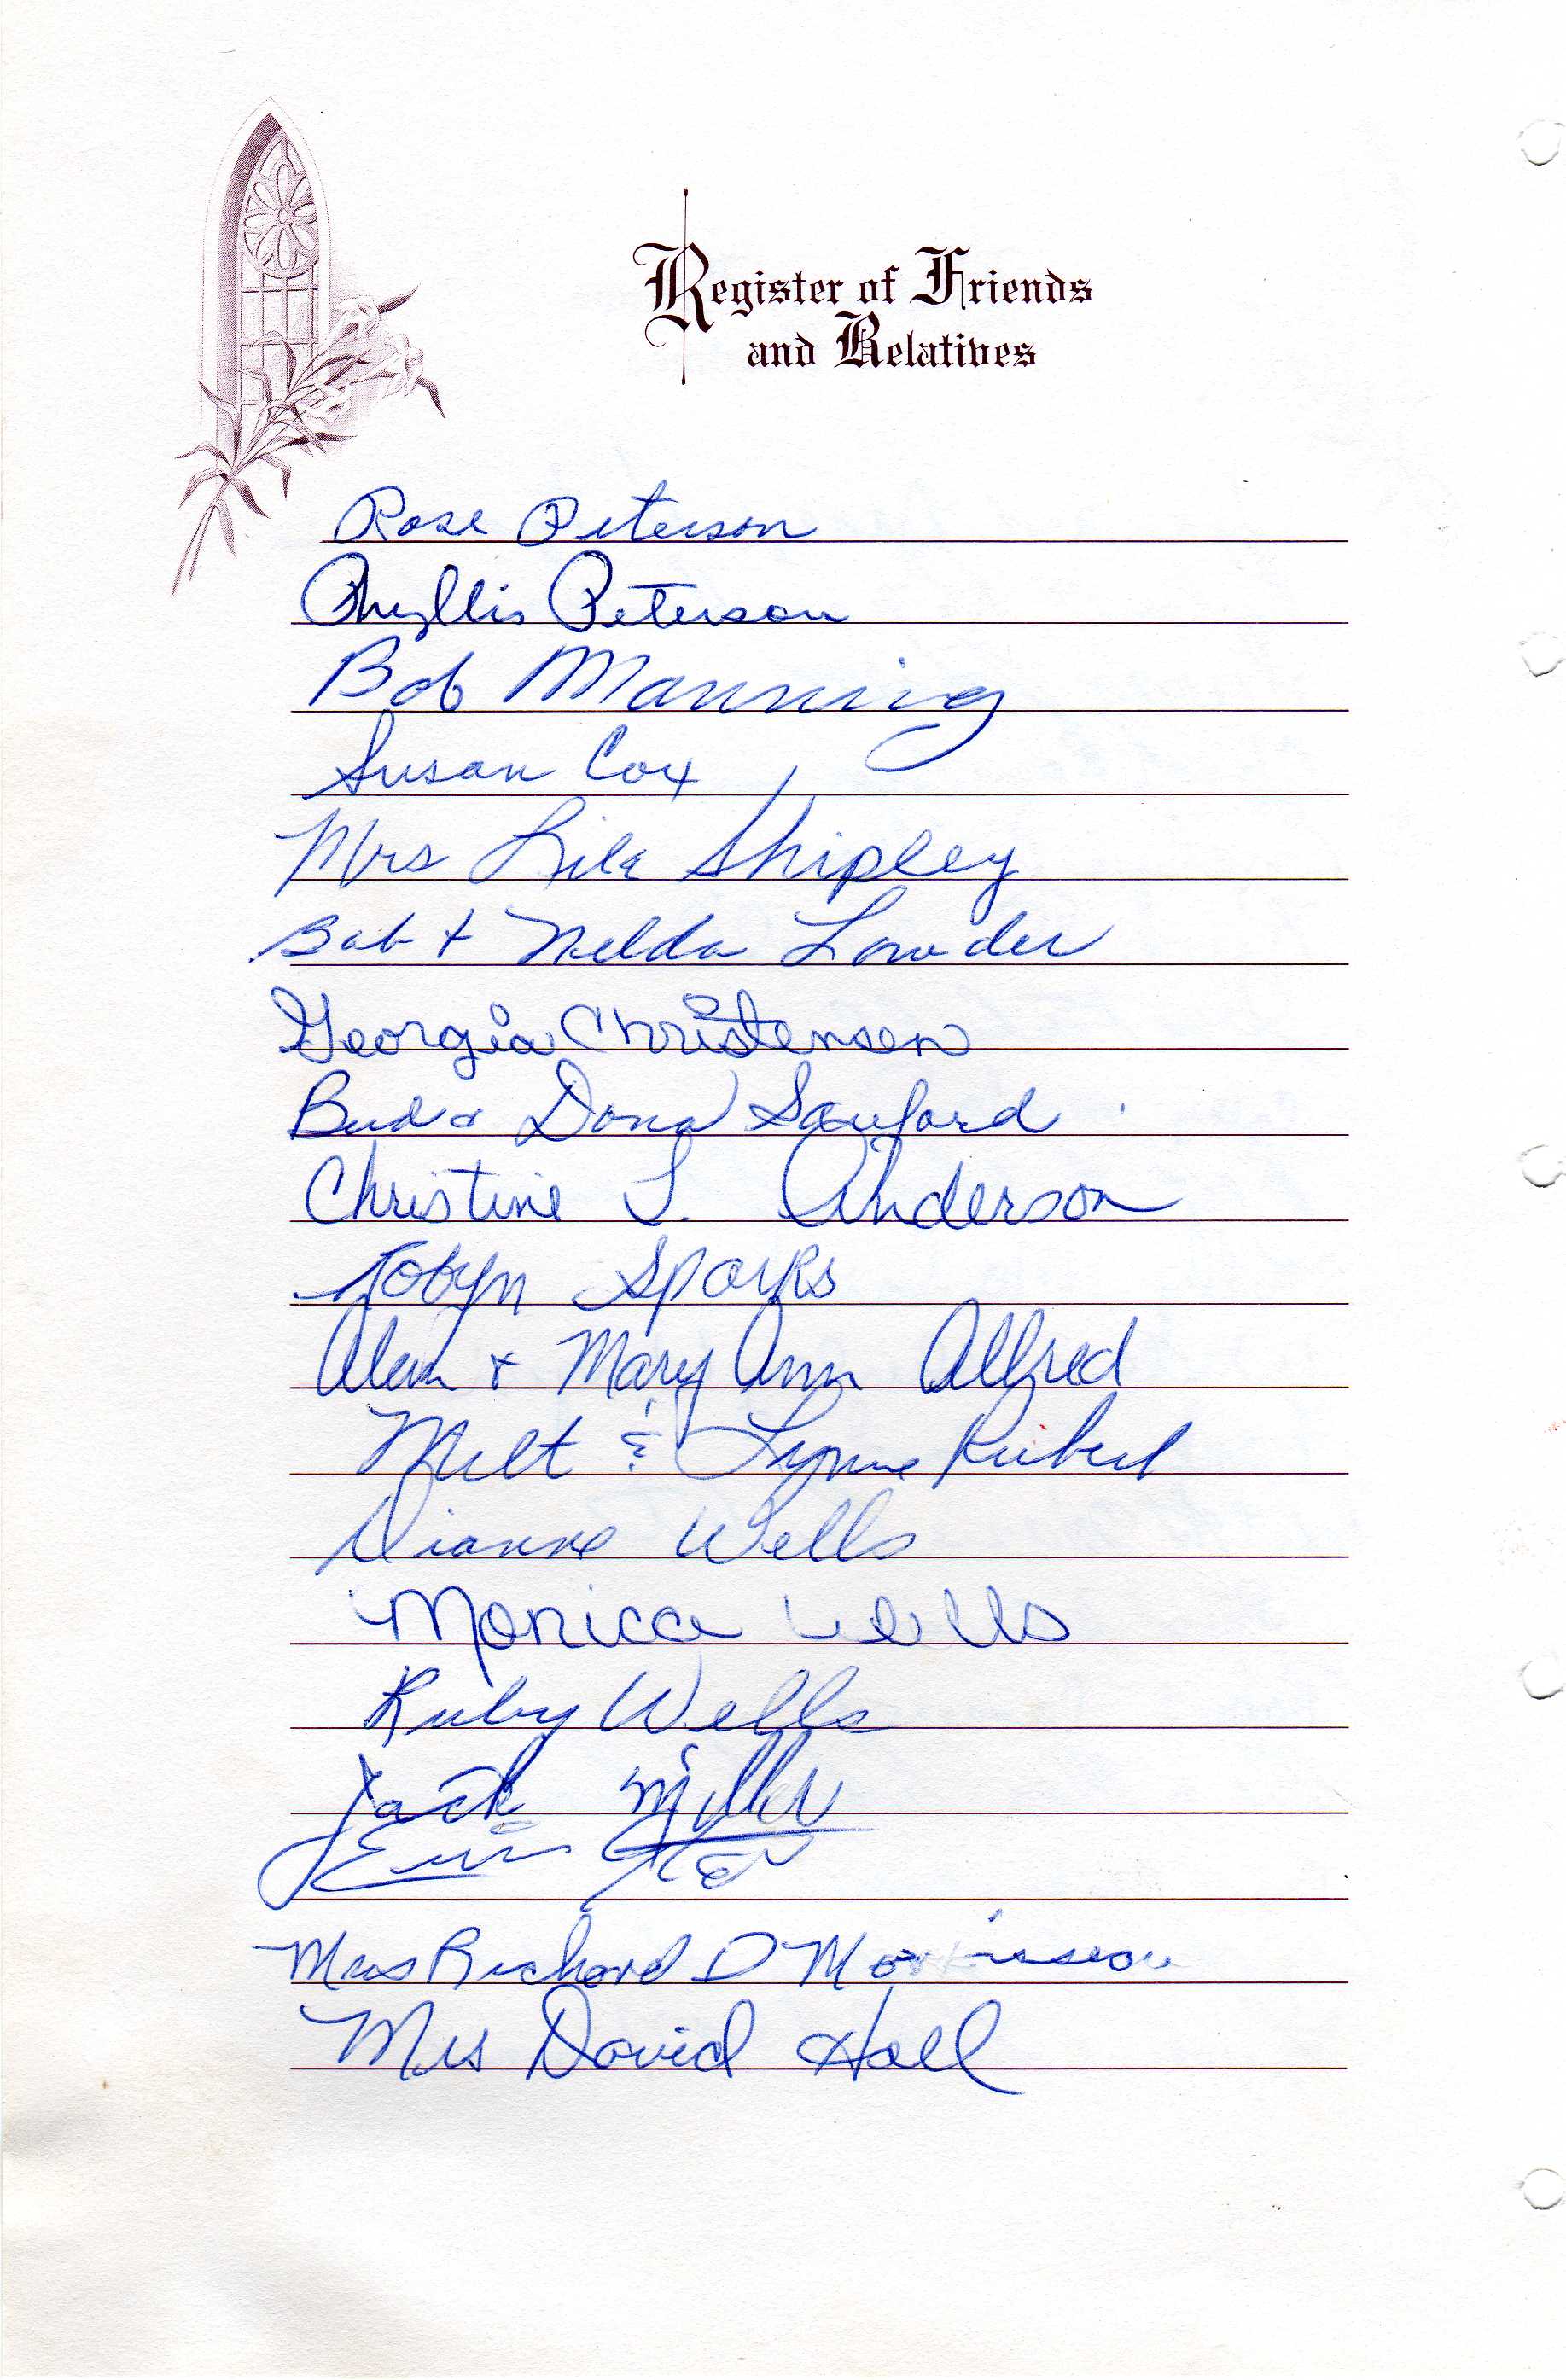 Register of Friends
and Relatives
Rose Peterson
Phyllis Peterson
Bob Manning
Susan Cox
Mrs Lila Shipley
Bob + Nelda Lowder
Georgia Christensen
Bud & Dona Sanford
Christine L. Anderson
Robyn Sparks
Alan + Mary Ann Allred
Milt & Lynne
Dianne Wells
Monica Wells
Ruby Wells
Jack Miller
Mrs Richard D
Mrs David Hall